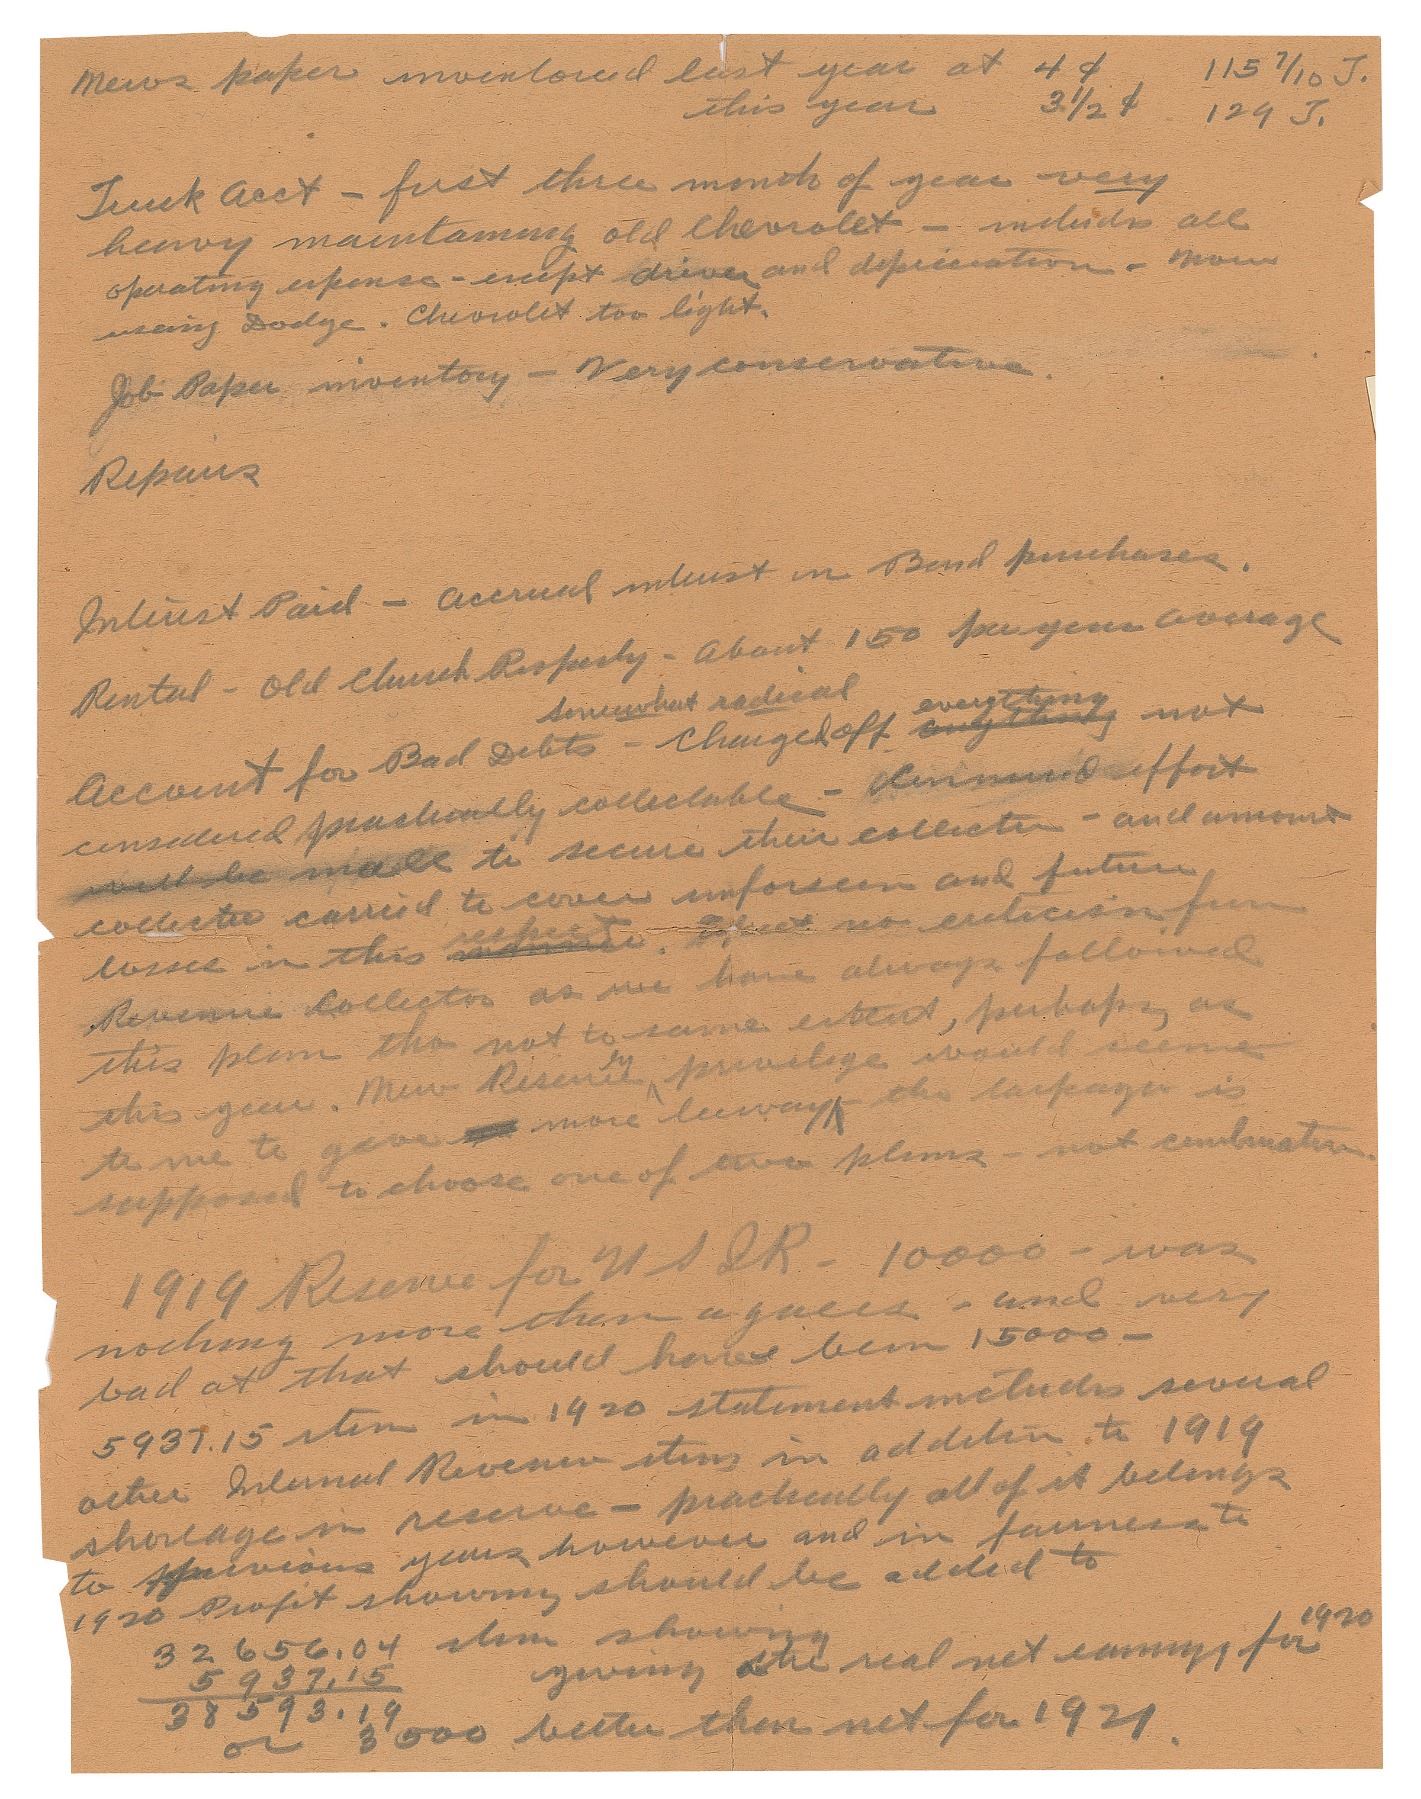 News paper inventoried last year at 4¢ 115 7/10 T.
this year 3 1/2¢ 129 T.
Truck Acct - first three month of year very
heavy maintaining old Chevrolet - includes all
operating expense - except driver and depreciation - Now
using Dodge. Chevrolet too light.
Job Paper inventory - Very conservative.
Repairs
Interest Paid - Accrual interest in Bond purchases.
Rental - Old Church Property - About 150 per year average
somewhat radical
Account for Bad Debts - Charged off anything everything not
considered practically collectable - effort
will be made to secure their collection - and amount
collected carried to cover unforseen and future
losses in this respect. no criticism from
Revenue Collector as we have always followed
this plan tho not to same extent, perhaps, as
this year. New Reserve privilege would seem
to me to give more leeway tho taxpayer is
supposed to choose one of two plans - not combination.
1919 Reserve for U S I R - 10000 - was
nothing more than a guess - and very
bad at that should have been 15000 -
5937.15 item in 1920 statement includes several
other Internal Revenue items in addition to 1919
shortage in reserve - practically all of it belongs
to previous years however and in fairness to
1920 Profit showing should be added to
32656.04 item showing
5937.15 giving the real net earnings for 1920
38593.19
or 3000 better than net for 1921.